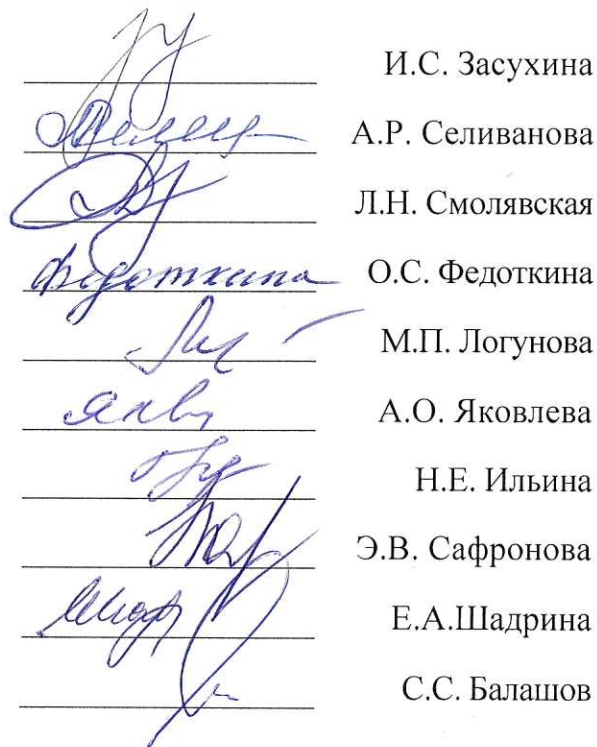 И.С. Засухина
А.Р. Селиванова
Л.Н. Смолявская
Федоткина О.С. Федоткина
М.П. Логунова
А.О. Яковлева
Н.Е. Ильина
Э.В. Сафронова
Е.А.Шадрина
С.С. Балашов